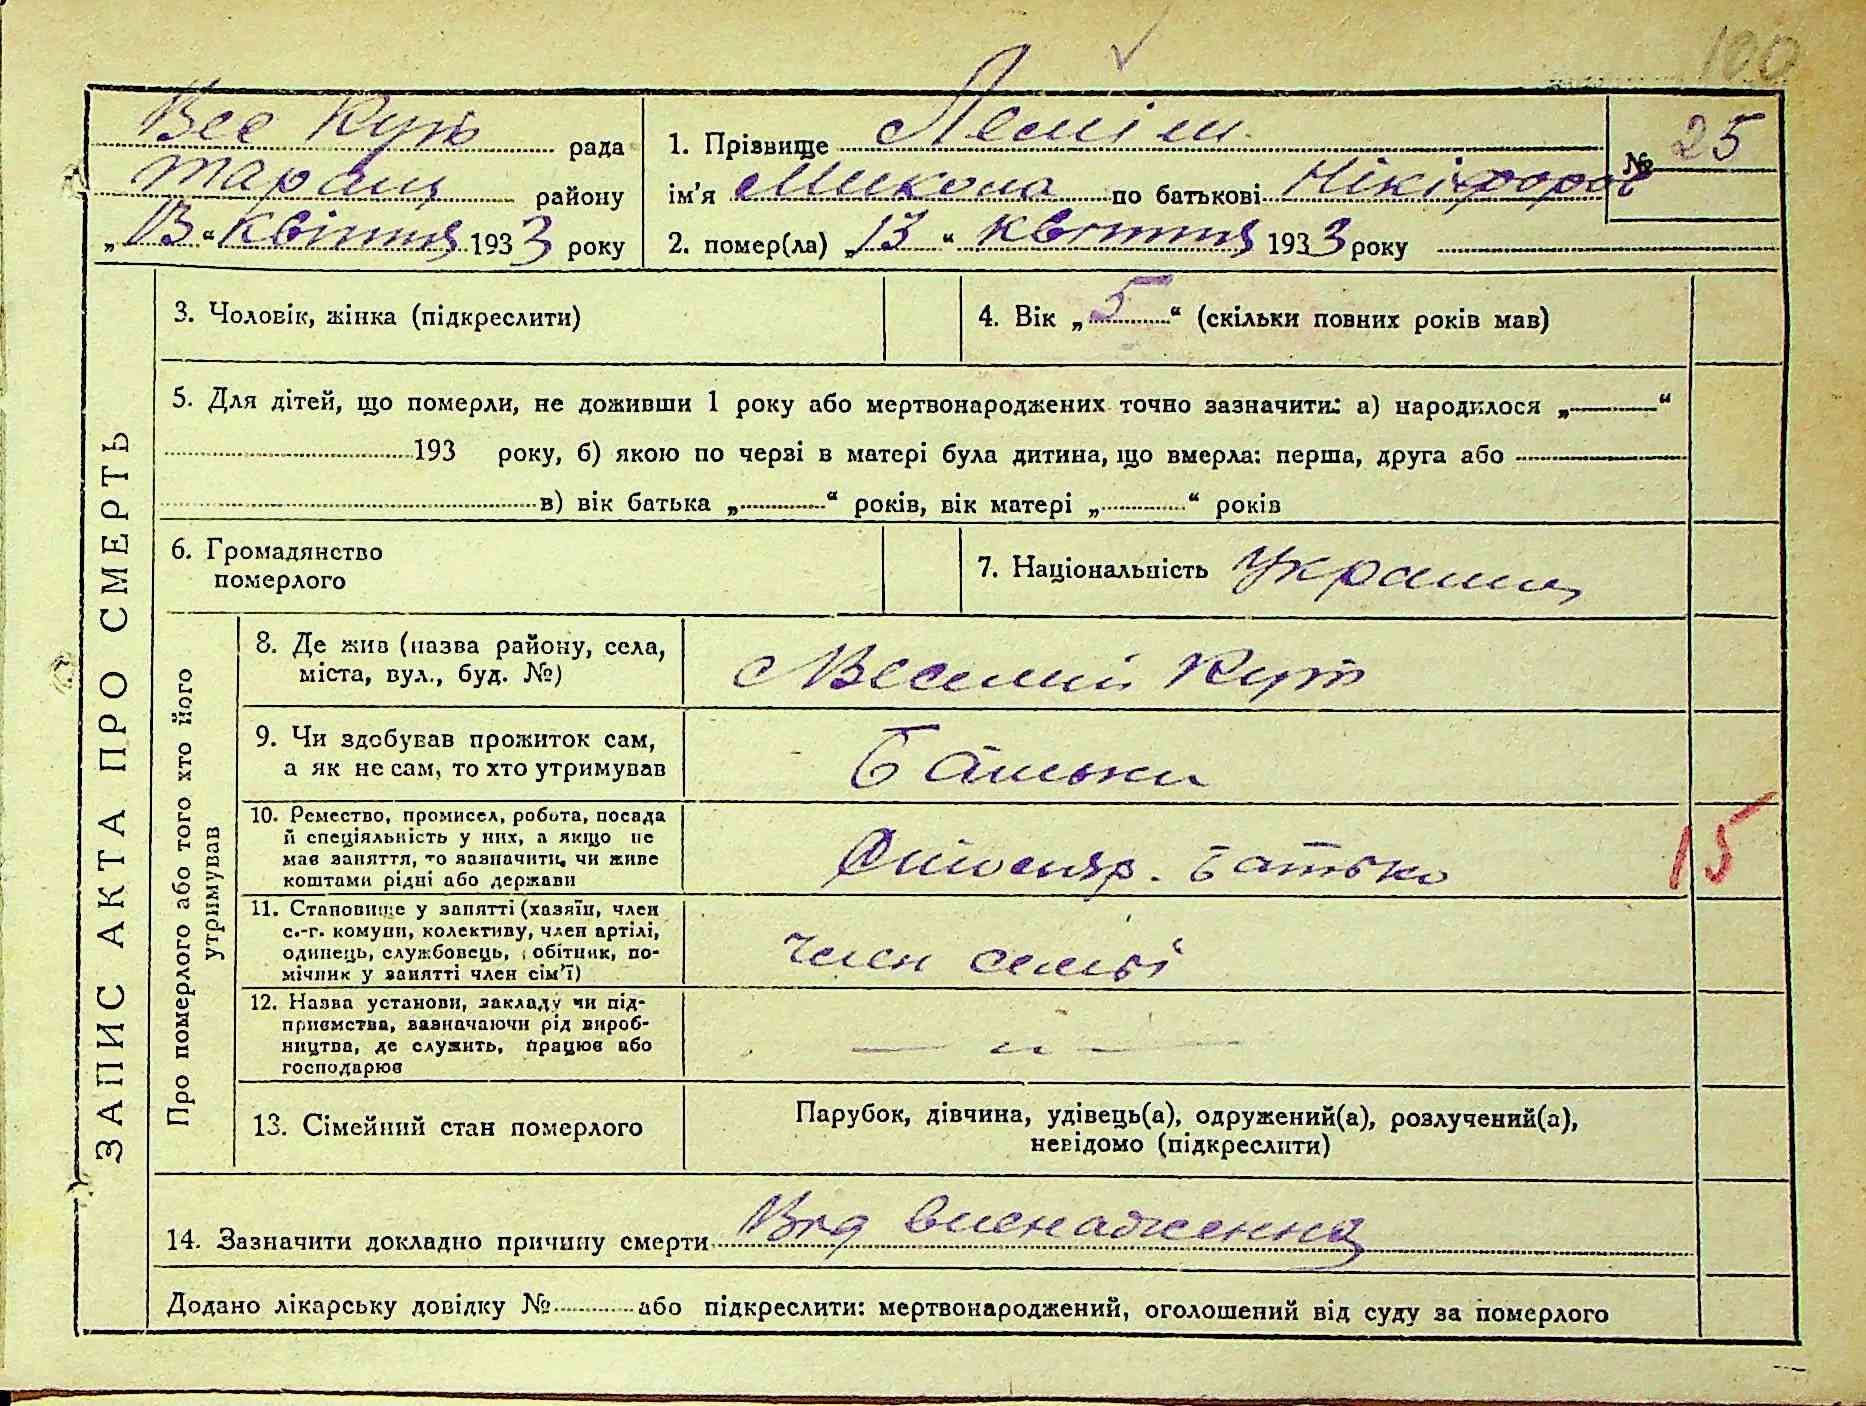 100
Вес Кут рада
Таращ району
„13“ квітня 1933 року
1. Прізвище Леміш
№ 25
ім'я Микола по батькові Нікіфоров
2. помер(ла) „13“ квітня 1933 року
ЗАПИС АКТА ПРО СМЕРТЬ
3. Чоловік, жінка (підкреслити)
4. Вік „5“ (скільки повних років мав)
5. Для дітей, що померли, не доживши 1 року або мертвонароджених точно зазначити: а) народилося „ “
193 року, б) якою по черзі в матері була дитина, що вмерла: перша, друга або
в) вік батька „ “ років, вік матері „ “ років
6. Громадянство
померлого
7. Національність Украин
Про померлого або того хто його
утримував
8. Де жив (назва району, села,
міста, вул., буд. №)
Веселий Кут
9. Чи здобував прожиток сам,
а як не сам, то хто утримував
Батьки
10. Ремество, промисел, робота, посада
й спеціяльність у них, а якщо не
має заняття, то зазначити, чи живе
коштами рідні або держави
батько
15
11. Становище у занятті (хазяїн, член
с.-г. комуни, колективу, член артілі,
одинець, службовець, обітник, по-
мічник у занятті член сім'ї)
член семьї
12. Назва установи, закладу чи під-
приємства, зазначаючи рід вироб-
ництва, де служить, працює або
господарює
— „ —
13. Сімейний стан померлого
Парубок, дівчина, удівець(а), одружений(а), розлучений(а),
невідомо (підкреслити)
14. Зазначити докладно причину смерти Від виснаження
Додано лікарську довідку № або підкреслити: мертвонароджений, оголошений від суду за померлого